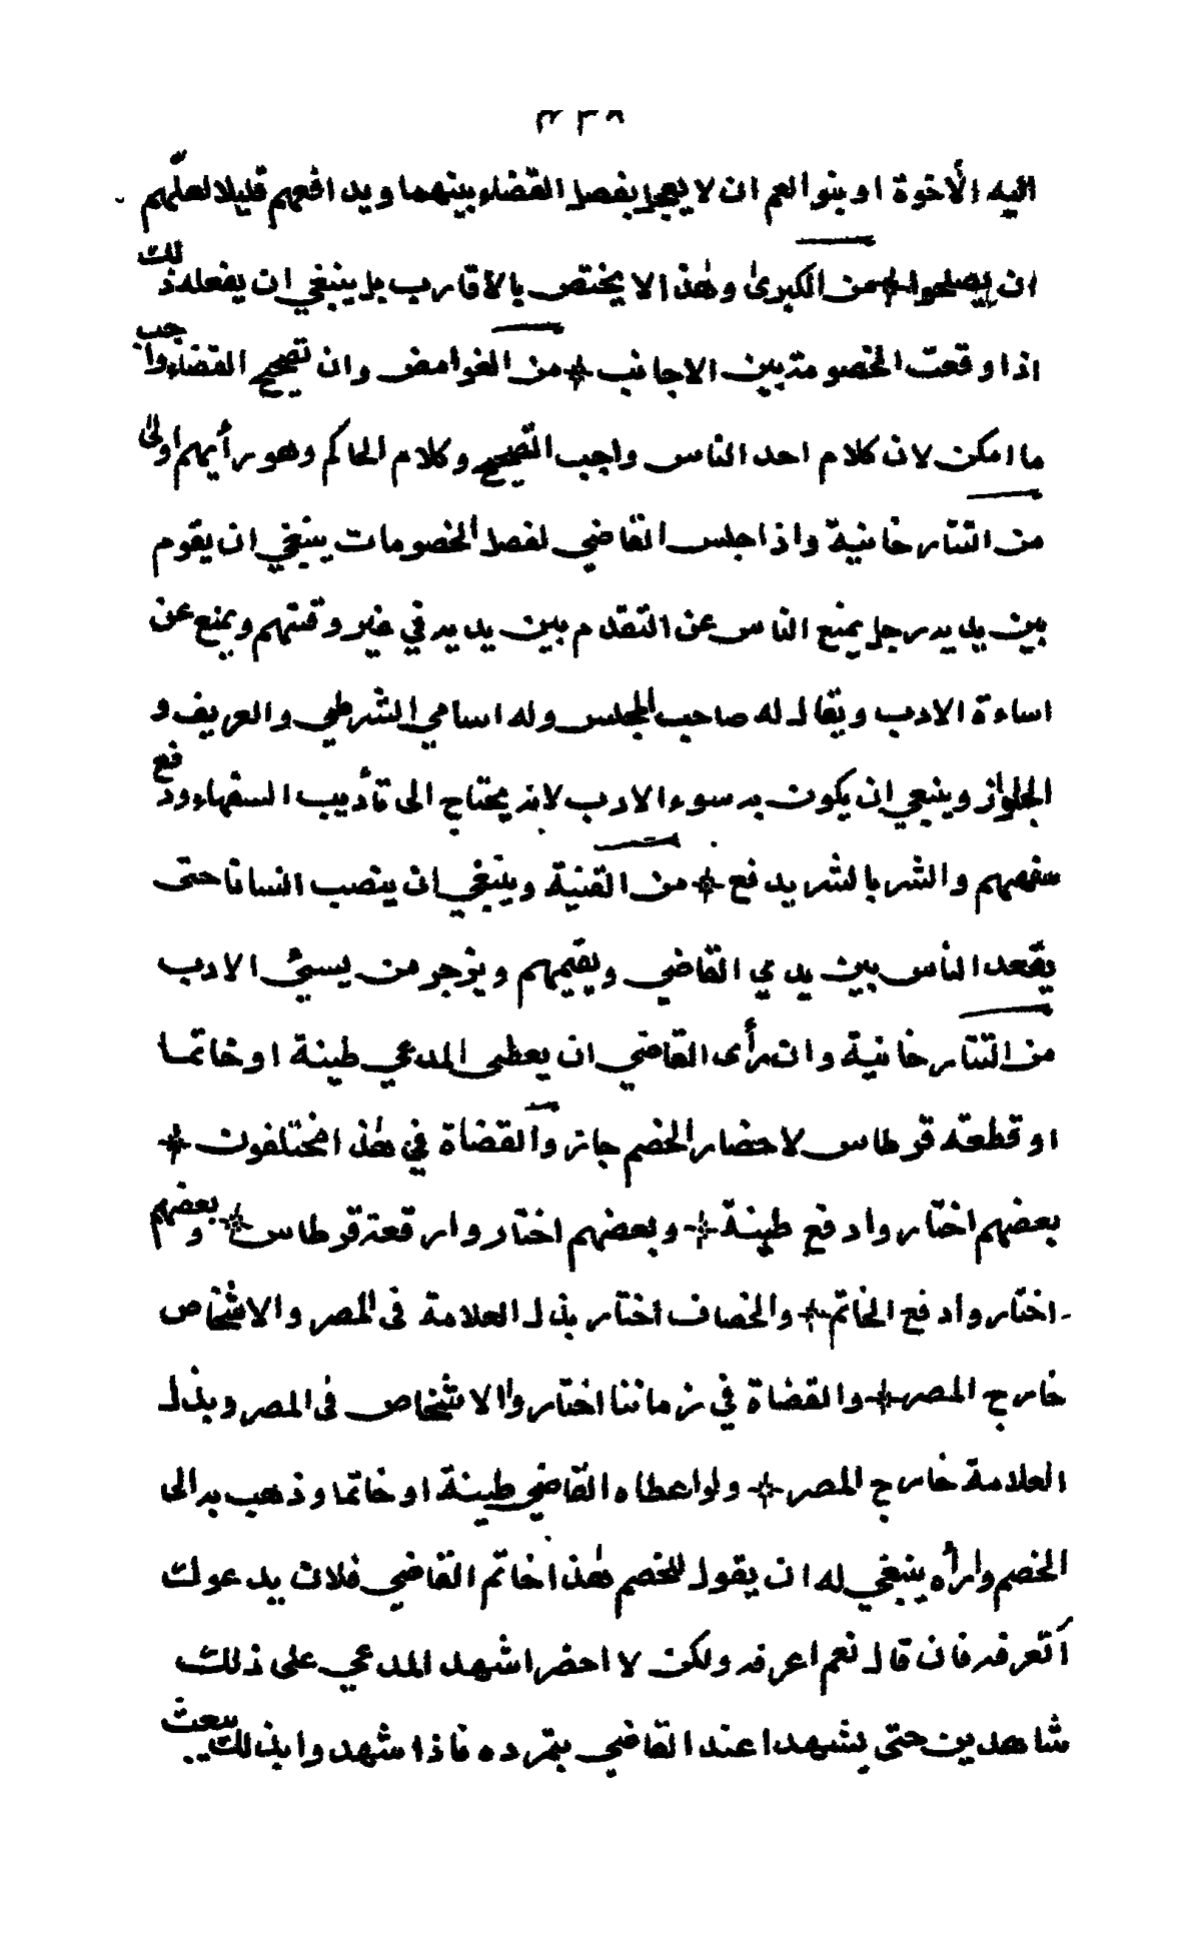 ٢٣٨
اليه الأخوة او بنوا العم ان لا يعجل بفصل القضاء بينهما ويدافعهم قليلا لعلّهم
ان يصلحوا ✤ من الكبرىٰ وهٰذا لا يختص بالأقارب بل ينبغي ان يفعله ذلك
اذا وقعت الخصومة بين الاجانب ✤ من الغوامض وان تصحيح القضاء واجب
ما امكن لان كلام احد الناس واجب التصحيح وكلام الحاكم وهو رأيهم اولىٰ
من التتار خانية واذا جلس القاضي لفصل الخصومات ينبغي ان يقوم
بين يديه رجل يمنع الناس عن التقدم بين يديه في غير وقتهم ويمنع عن
اساءة الادب ويقال له صاحب المجلس وله اسامي الشرطي والعريف و
الجلواز وينبغي ان يكون به سوء الادب لانه يحتاج الى تأديب السفهاء ودفع
سفههم والشر بالشر يدفع ✤ من القنية وينبغي ان ينصب انسانا حتى
يقعد الناس بين يدي القاضي ويقيمهم ويزجر من يسيئ الادب
من التتار خانية وان رأى القاضي ان يعطى المدعي طينة او خاتما
او قطعة قرطاس لاحضار الخصم جاز والقضاة في هٰذا مختلفون ✤
بعضهم اختاروا دفع طينة ✤ وبعضهم اختاروا رقعة قرطاس ✤ وبعضهم
اختاروا دفع الخاتم ✤ والخصاف اختار بذل العلامة فى المصر والاشخاص
خارج المصر ✤ والقضاة في زماننا اختاروا الاشخاص فى المصر وبذل
العلامة خارج المصر ✤ ولو اعطاه القاضي طينة او خاتما وذهب به الى
الخصم واراه ينبغي له ان يقول للخصم هٰذا خاتم القاضي فلان يدعوك
أتعرفه فان قال نعم اعرفه ولكن لا احضر اشهد المدعي على ذلك
شاهدين حتى يشهدا عند القاضي بتمرده فاذا شهدوا بذلك يبعث